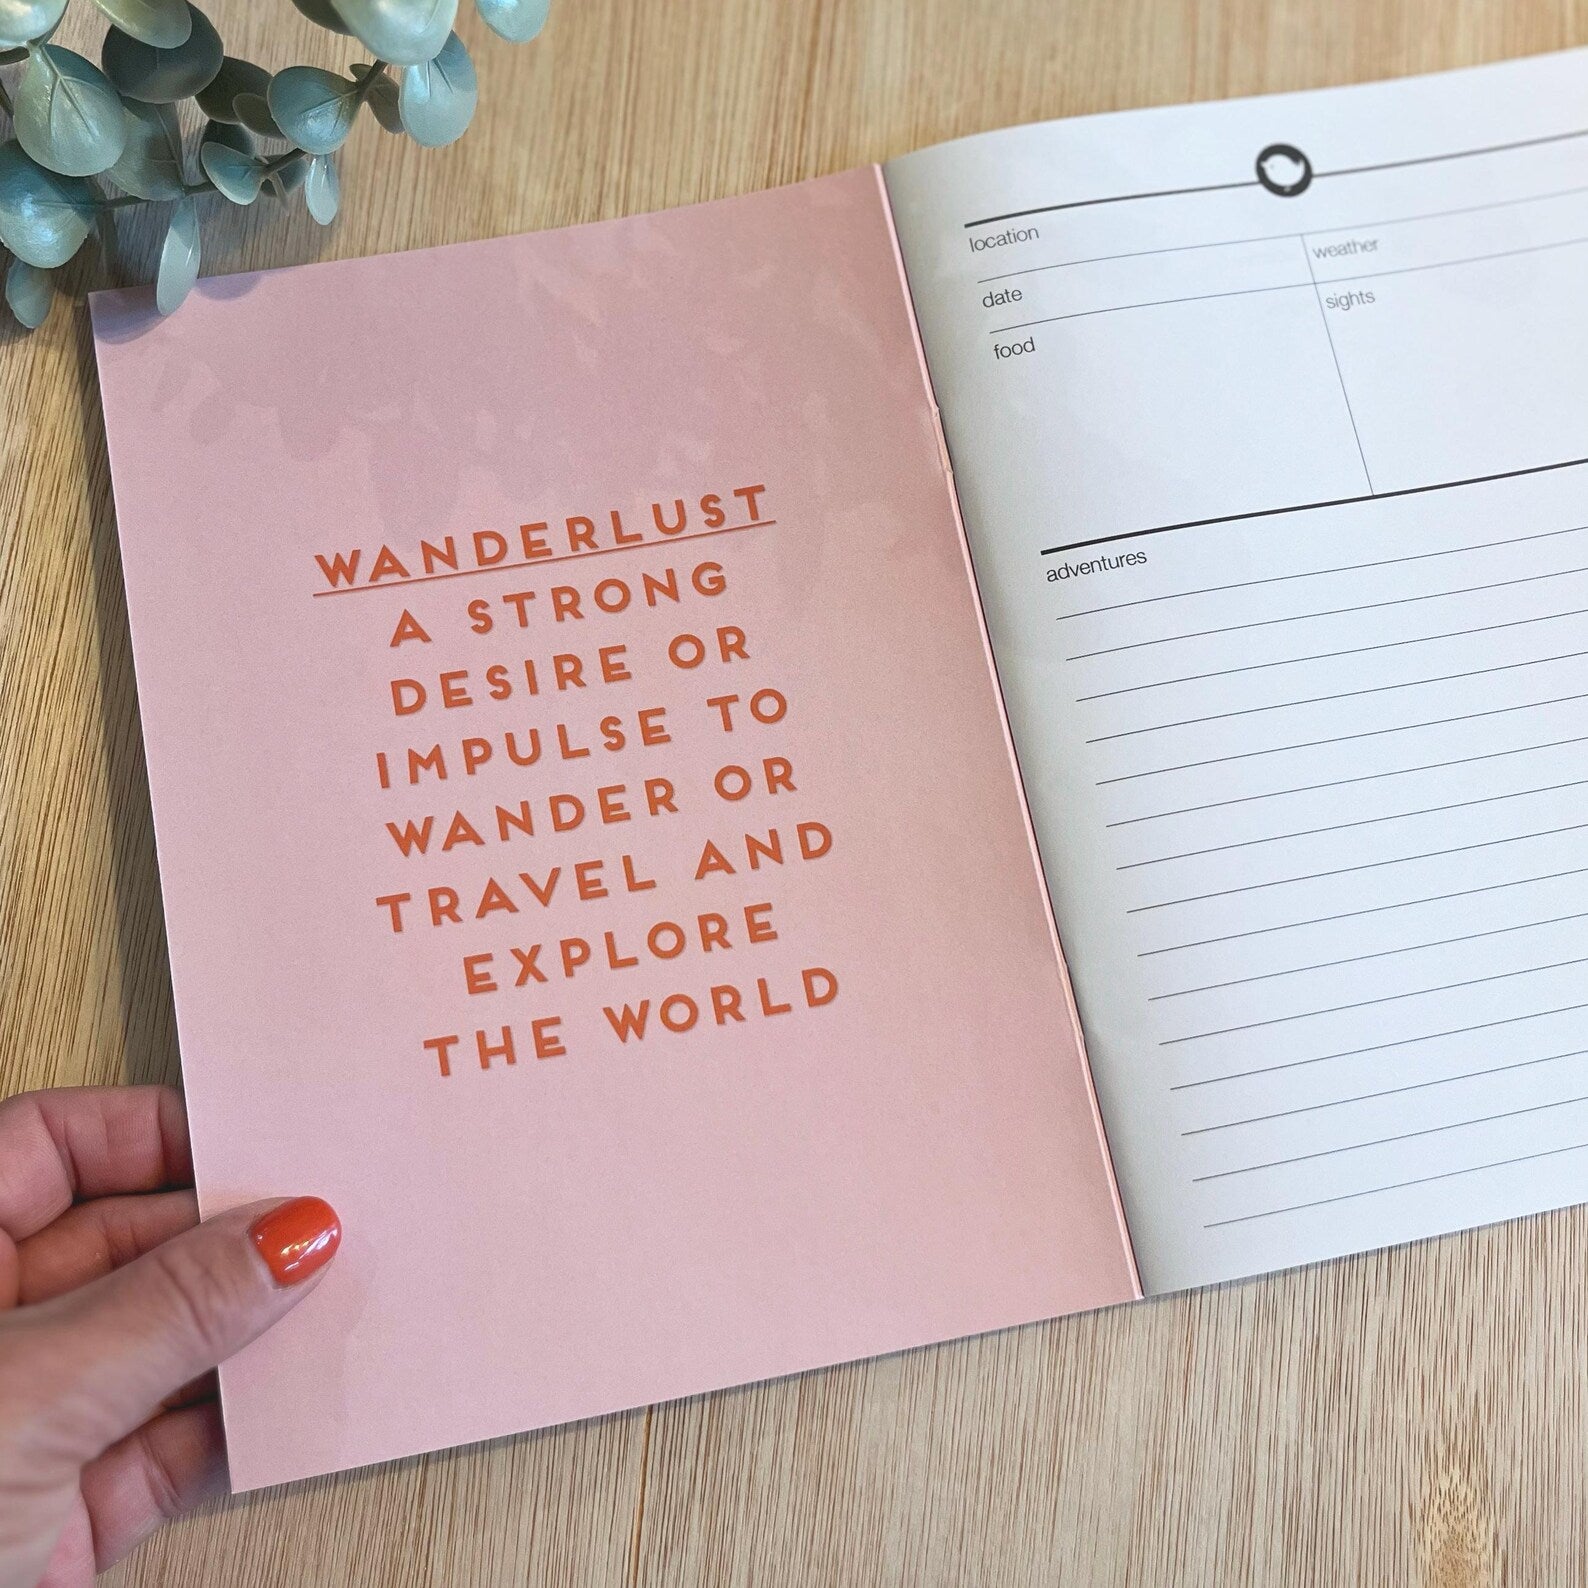 WANDERLUST
A STRONG
DESIRE OR
IMPULSE TO
WANDER OR
TRAVEL AND
EXPLORE
THE WORLD
location
weather
date
sights
food
adventures